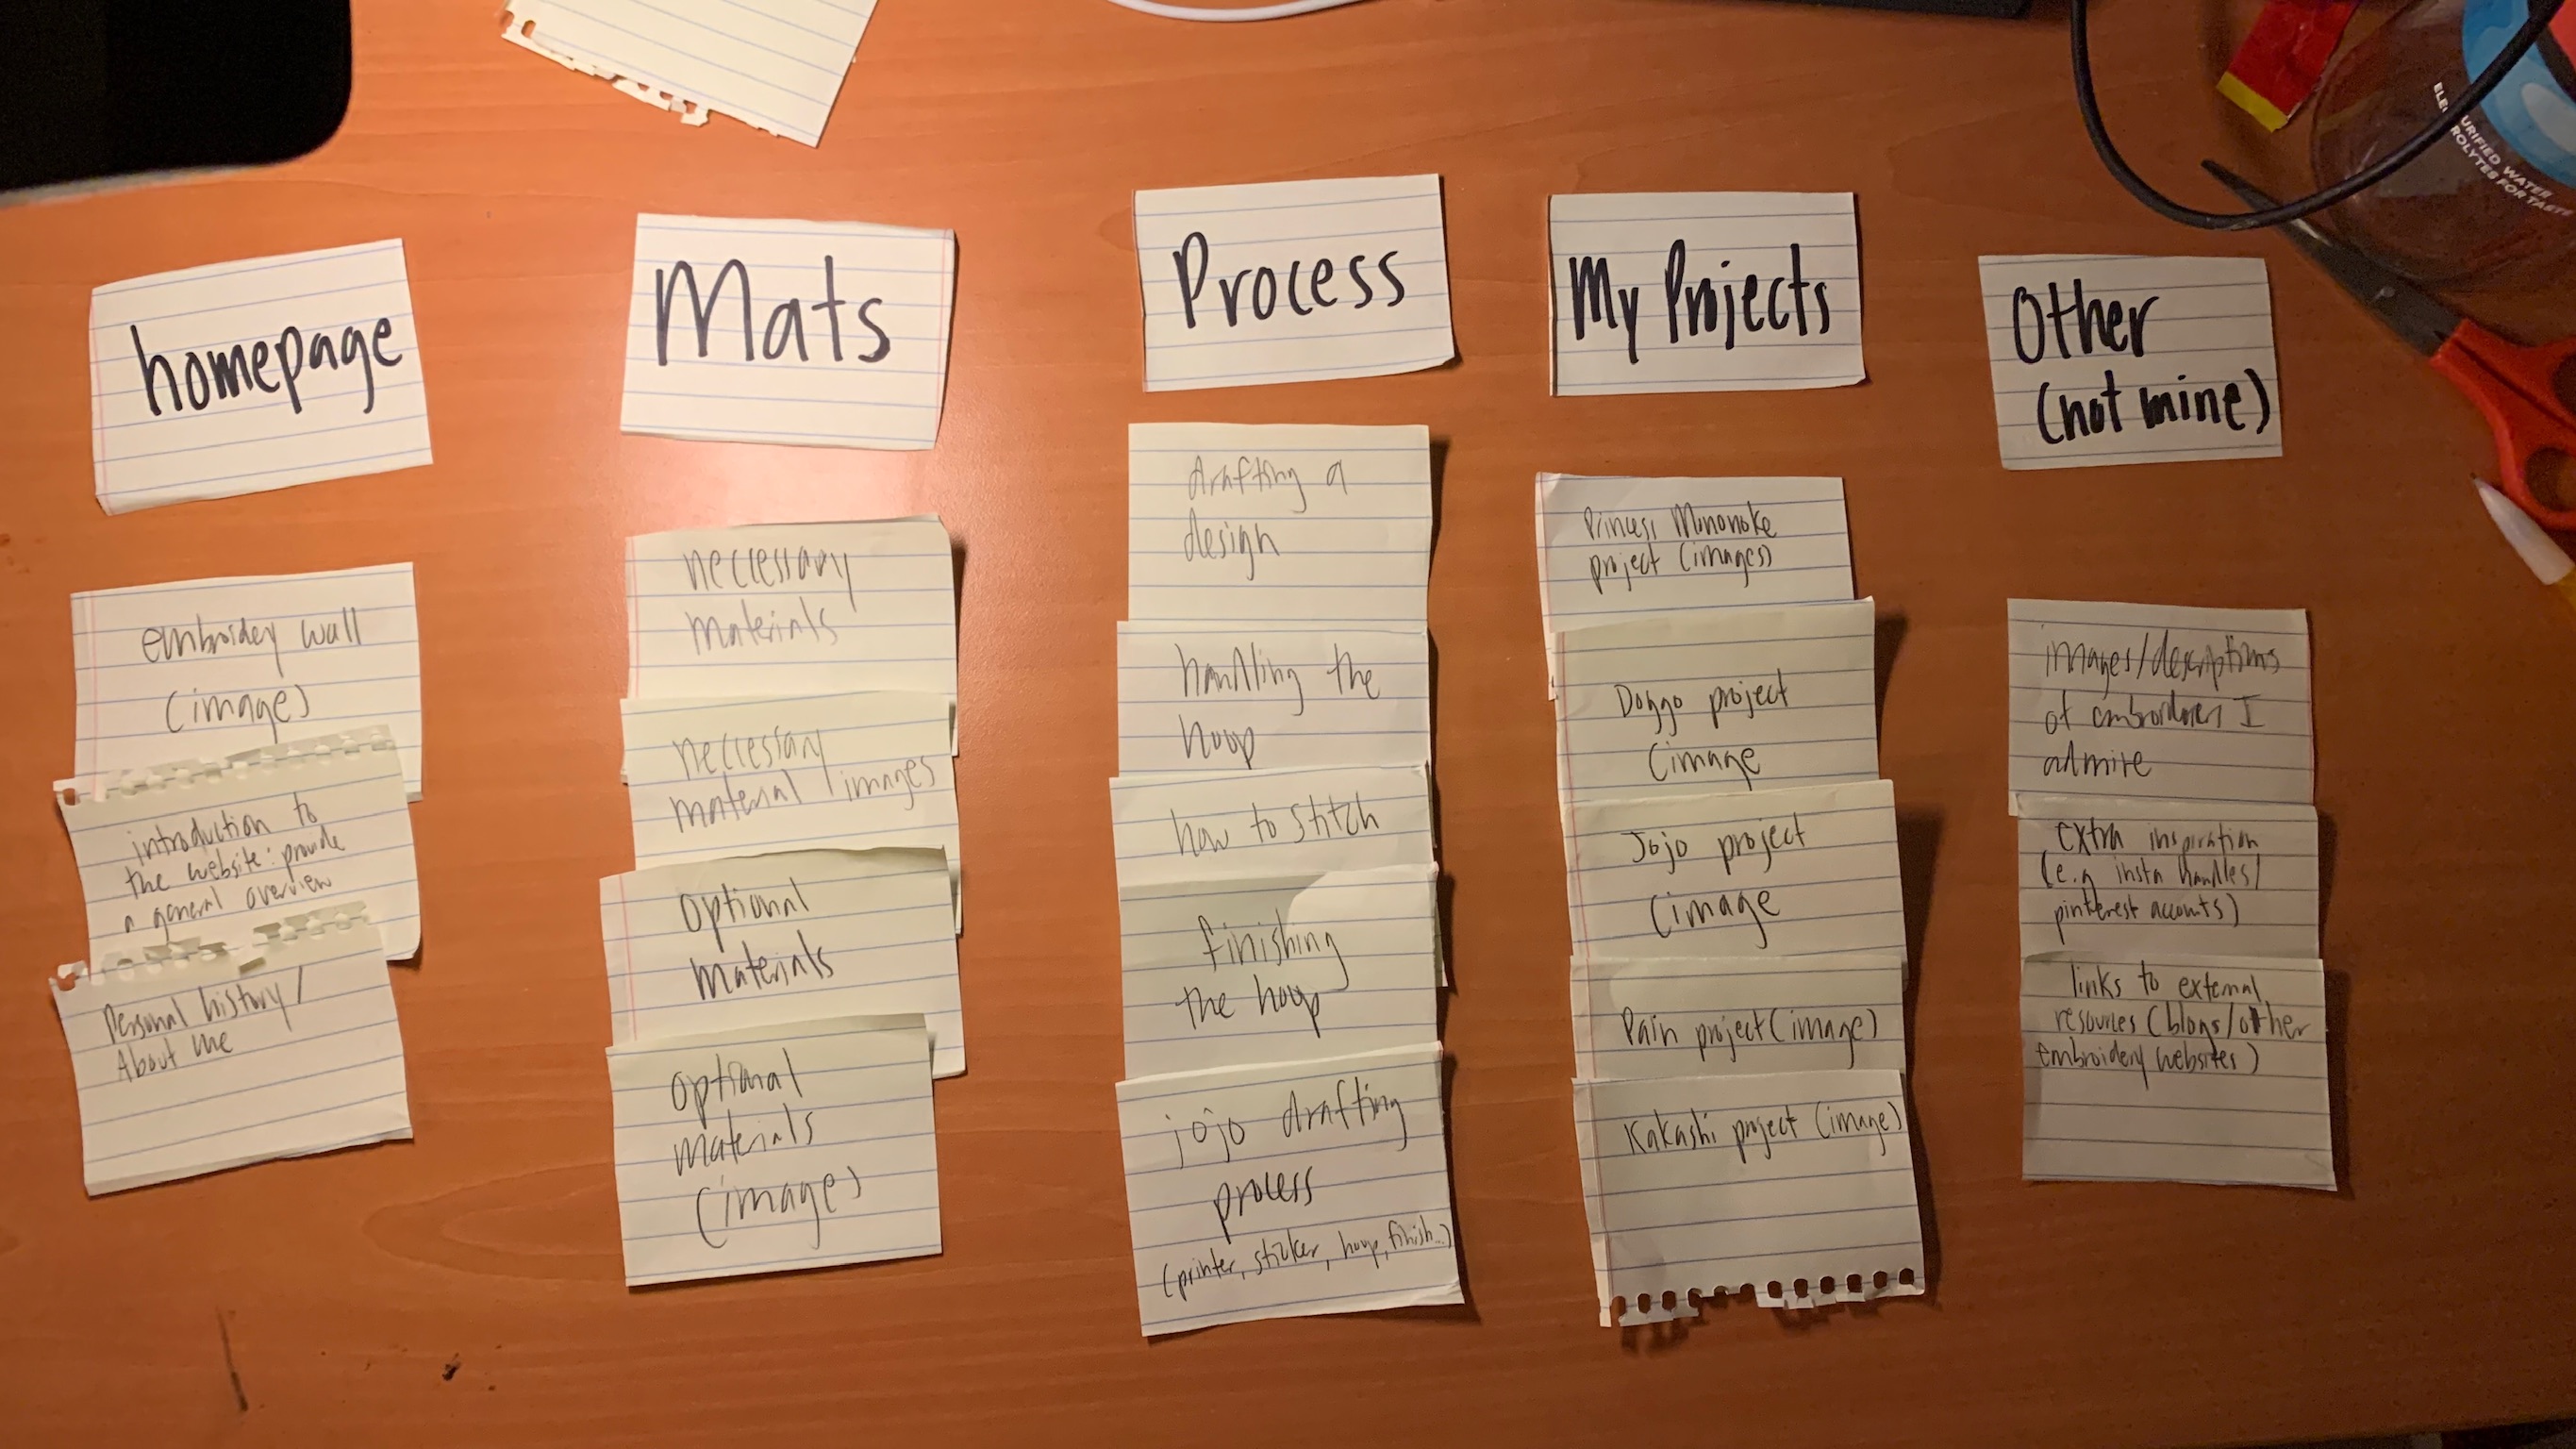 homepage
embroidey wall
(image)
introduction to
the website: provide
a general overview
Personal history/
About me
Mats
neccessary
materials
neccessary
material images
optional
materials
optional
materials
(image)
Process
drafting a
design
handling the
hoop
how to stitch
finishing
the hoop
jojo drafting
process
(printer, sticker, hoop, finish..)
My Projects
Princess Mononoke
project (images)
Doggo project
(image
Jojo project
(image
Pain project (image)
Kakashi project (image)
Other
(not mine)
images/descriptions
of I
admire
extra inspiration
(e.g insta handles/
pinterest accounts)
links to external
resources (blogs/other
embroidery websites)
URIFIED WATER
ROLYTES FOR TAST